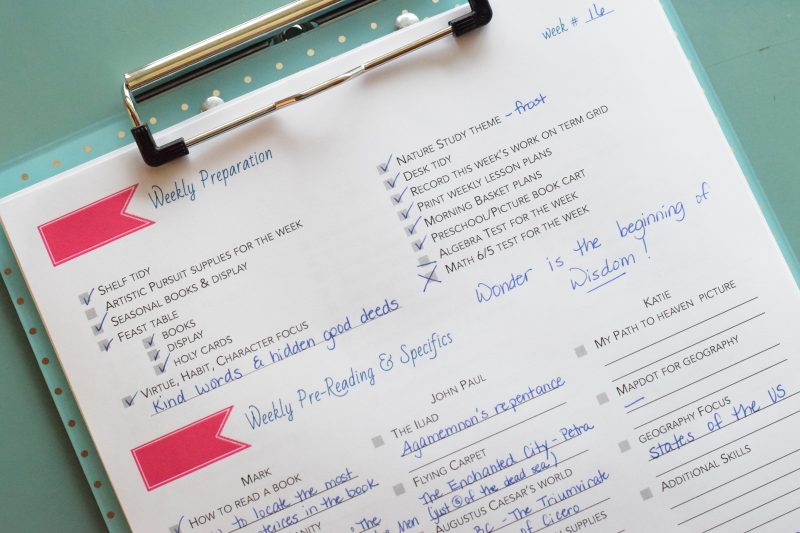 week # 16
Weekly Preparation
Shelf tidy
Artistic Pursuit supplies for the week
Seasonal books & display
Feast table
books
display
holy cards
Virtue, Habit, Character focus
Kind words & hidden good deeds
Nature Study theme - frost
Desk tidy
Record this week's work on term grid
Print weekly lesson plans
Morning Basket plans
Preschool/Picture book cart
Algebra Test for the week
Math 6/5 test for the week
Wonder is the beginning of
Wisdom!
Weekly Pre-Reading & Specifics
Mark
How to read a book
to locate the most
in the book
John Paul
The Iliad
Agamemnon's repentance
Flying Carpet
The Enchanted City - Petra
(just S of the dead sea)
Augustus Caesar's World
BC - The Triumvirate
of Cicero
supplies
Katie
My Path to Heaven picture
Mapdot for geography
Geography Focus
States of the US
Additional Skills